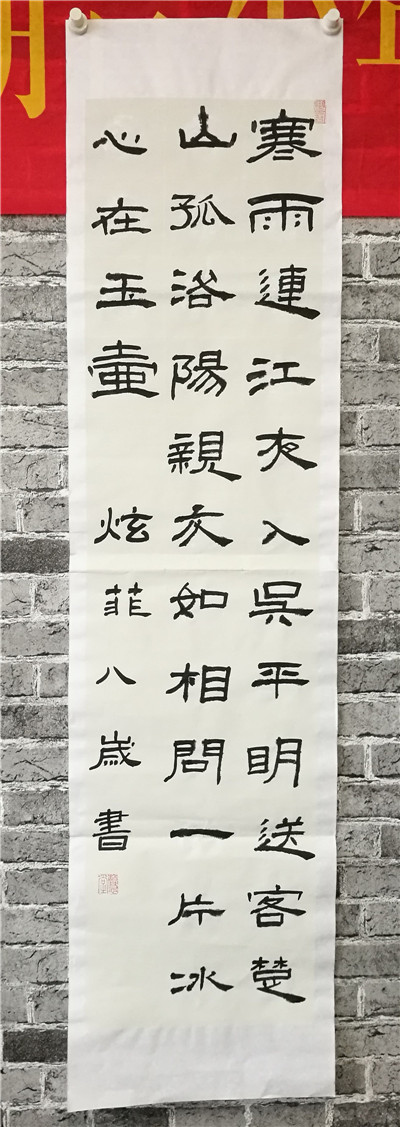 寒雨連江夜入吳平明送客楚
山孤洛陽親友如相問一片冰
心在玉壺 炫菲八歲書